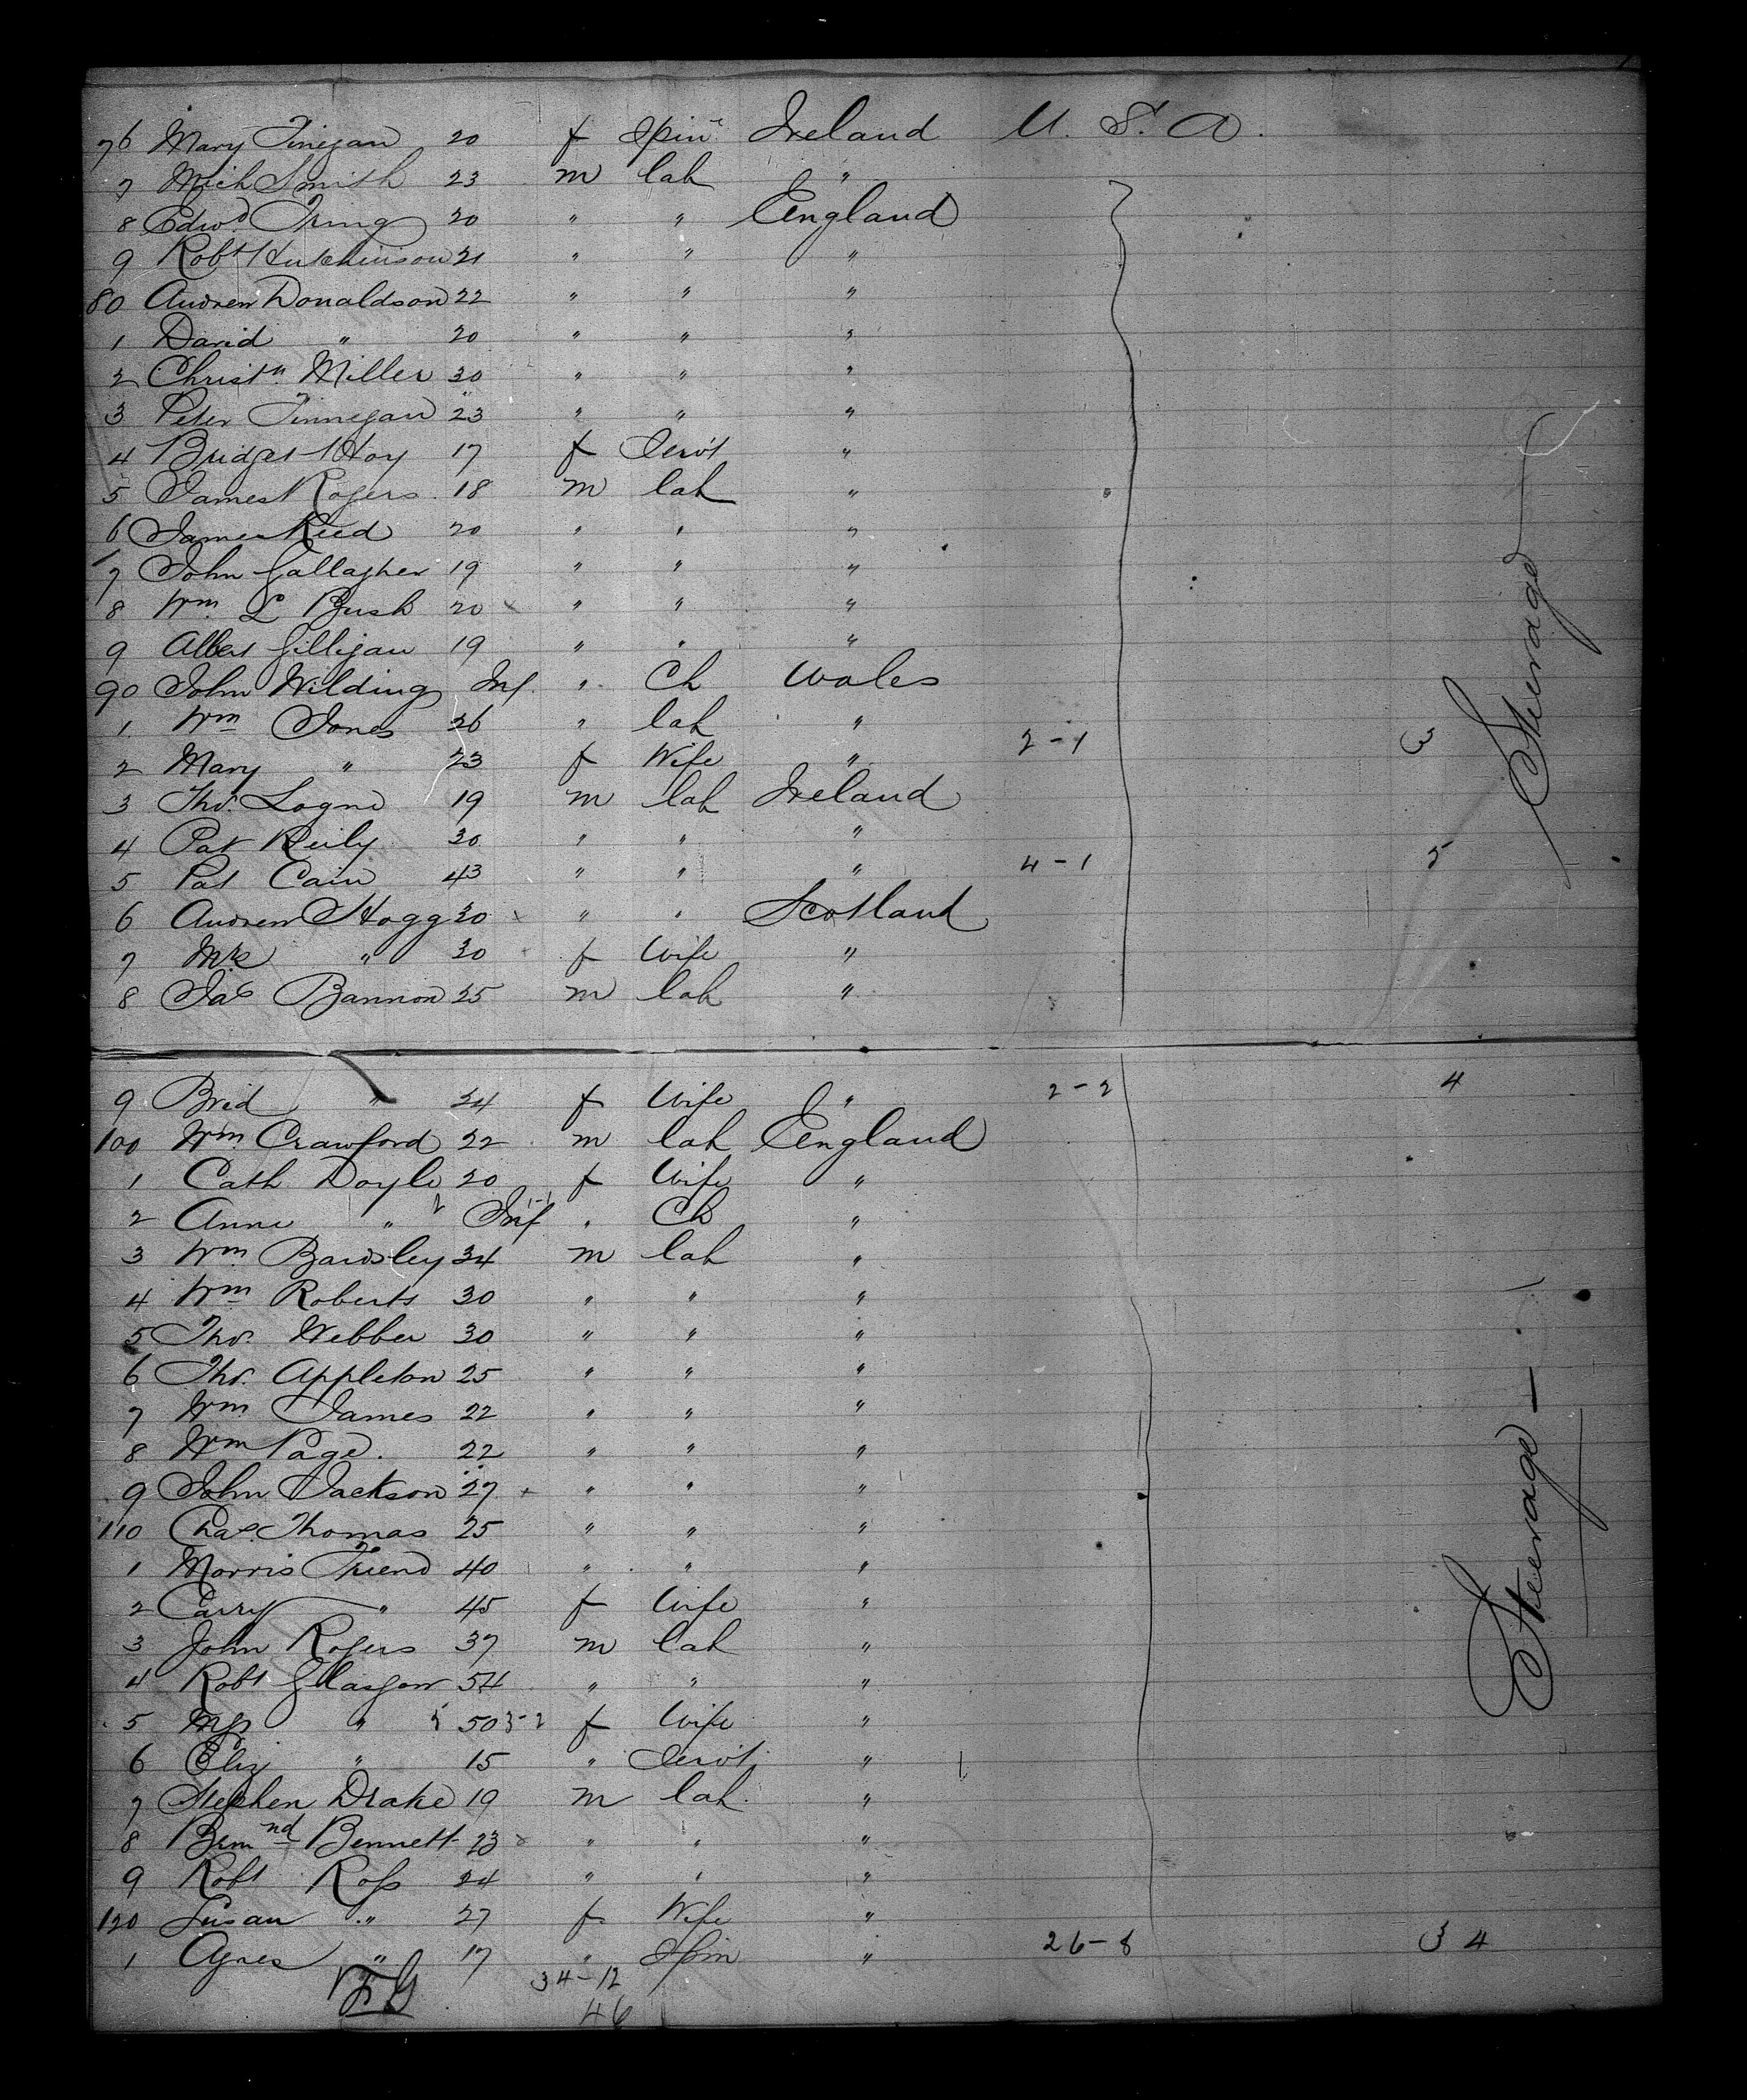 76 Mary Finegan 20 f Spinr Ireland U. S. A.
7 Mich Smith 23 m lab "
8 Edwd 20 " " England
9 Robt Hutchinson 21 " " "
80 Andrew Donaldson 22 " " "
1 David " 20 " " "
2 Christn Miller 30 " " "
3 Peter Finnegan 23 " " "
4 Bridget Hoy 17 f Servt "
5 James Rogers 18 m lab "
6 James Reed 20 " " "
7 John Gallagher 19 " " "
8 Wm L Bush 20 " " "
9 Albert Gilligan 19 " " "
90 John Wilding Inf. " Ch Wales
1 Wm Jones 26 " lab "
2 Mary " 23 f Wife " 2-1 3
3 Thos. Logne 19 m lab Ireland
4 Pat Reily 30 " " "
5 Pat Cain 43 " " " 4-1 5
6 Andrew Hogg 30 " " Scotland
7 Mrs " 30 f Wife "
8 Jas Bannon 25 m lab "
Steerage
9 Brid " 24 f Wife " 2-2 4
100 Wm Crawford 22 m lab England
1 Cath Doyle 20 f Wife "
2 Anne " Inf " Ch "
3 Wm Bardsley 34 m lab "
4 Wm Roberts 30 " " "
5 Thos. Webber 30 " " "
6 Thos. Appleton 25 " " "
7 Wm James 22 " " "
8 Wm Page. 22 " " "
9 John Jackson 27 " " "
110 Chas Thomas 25 " " "
1 Morris Friend 40 " " "
2 Carry " 45 f Wife "
3 John Rogers 37 m lab "
4 Robt Glasgow 54 " " "
5 Mrs " 50 3-2 f Wife "
6 Eliz " 15 " Servt "
7 Stephen Drake 19 m lab. "
8 Bennett 23 " " "
9 Robt Ross 24 " " "
120 Susan " 27 f Wife "
1 Agnes " 17 " Spin " 26-8 34
Steerage —
34-12
46